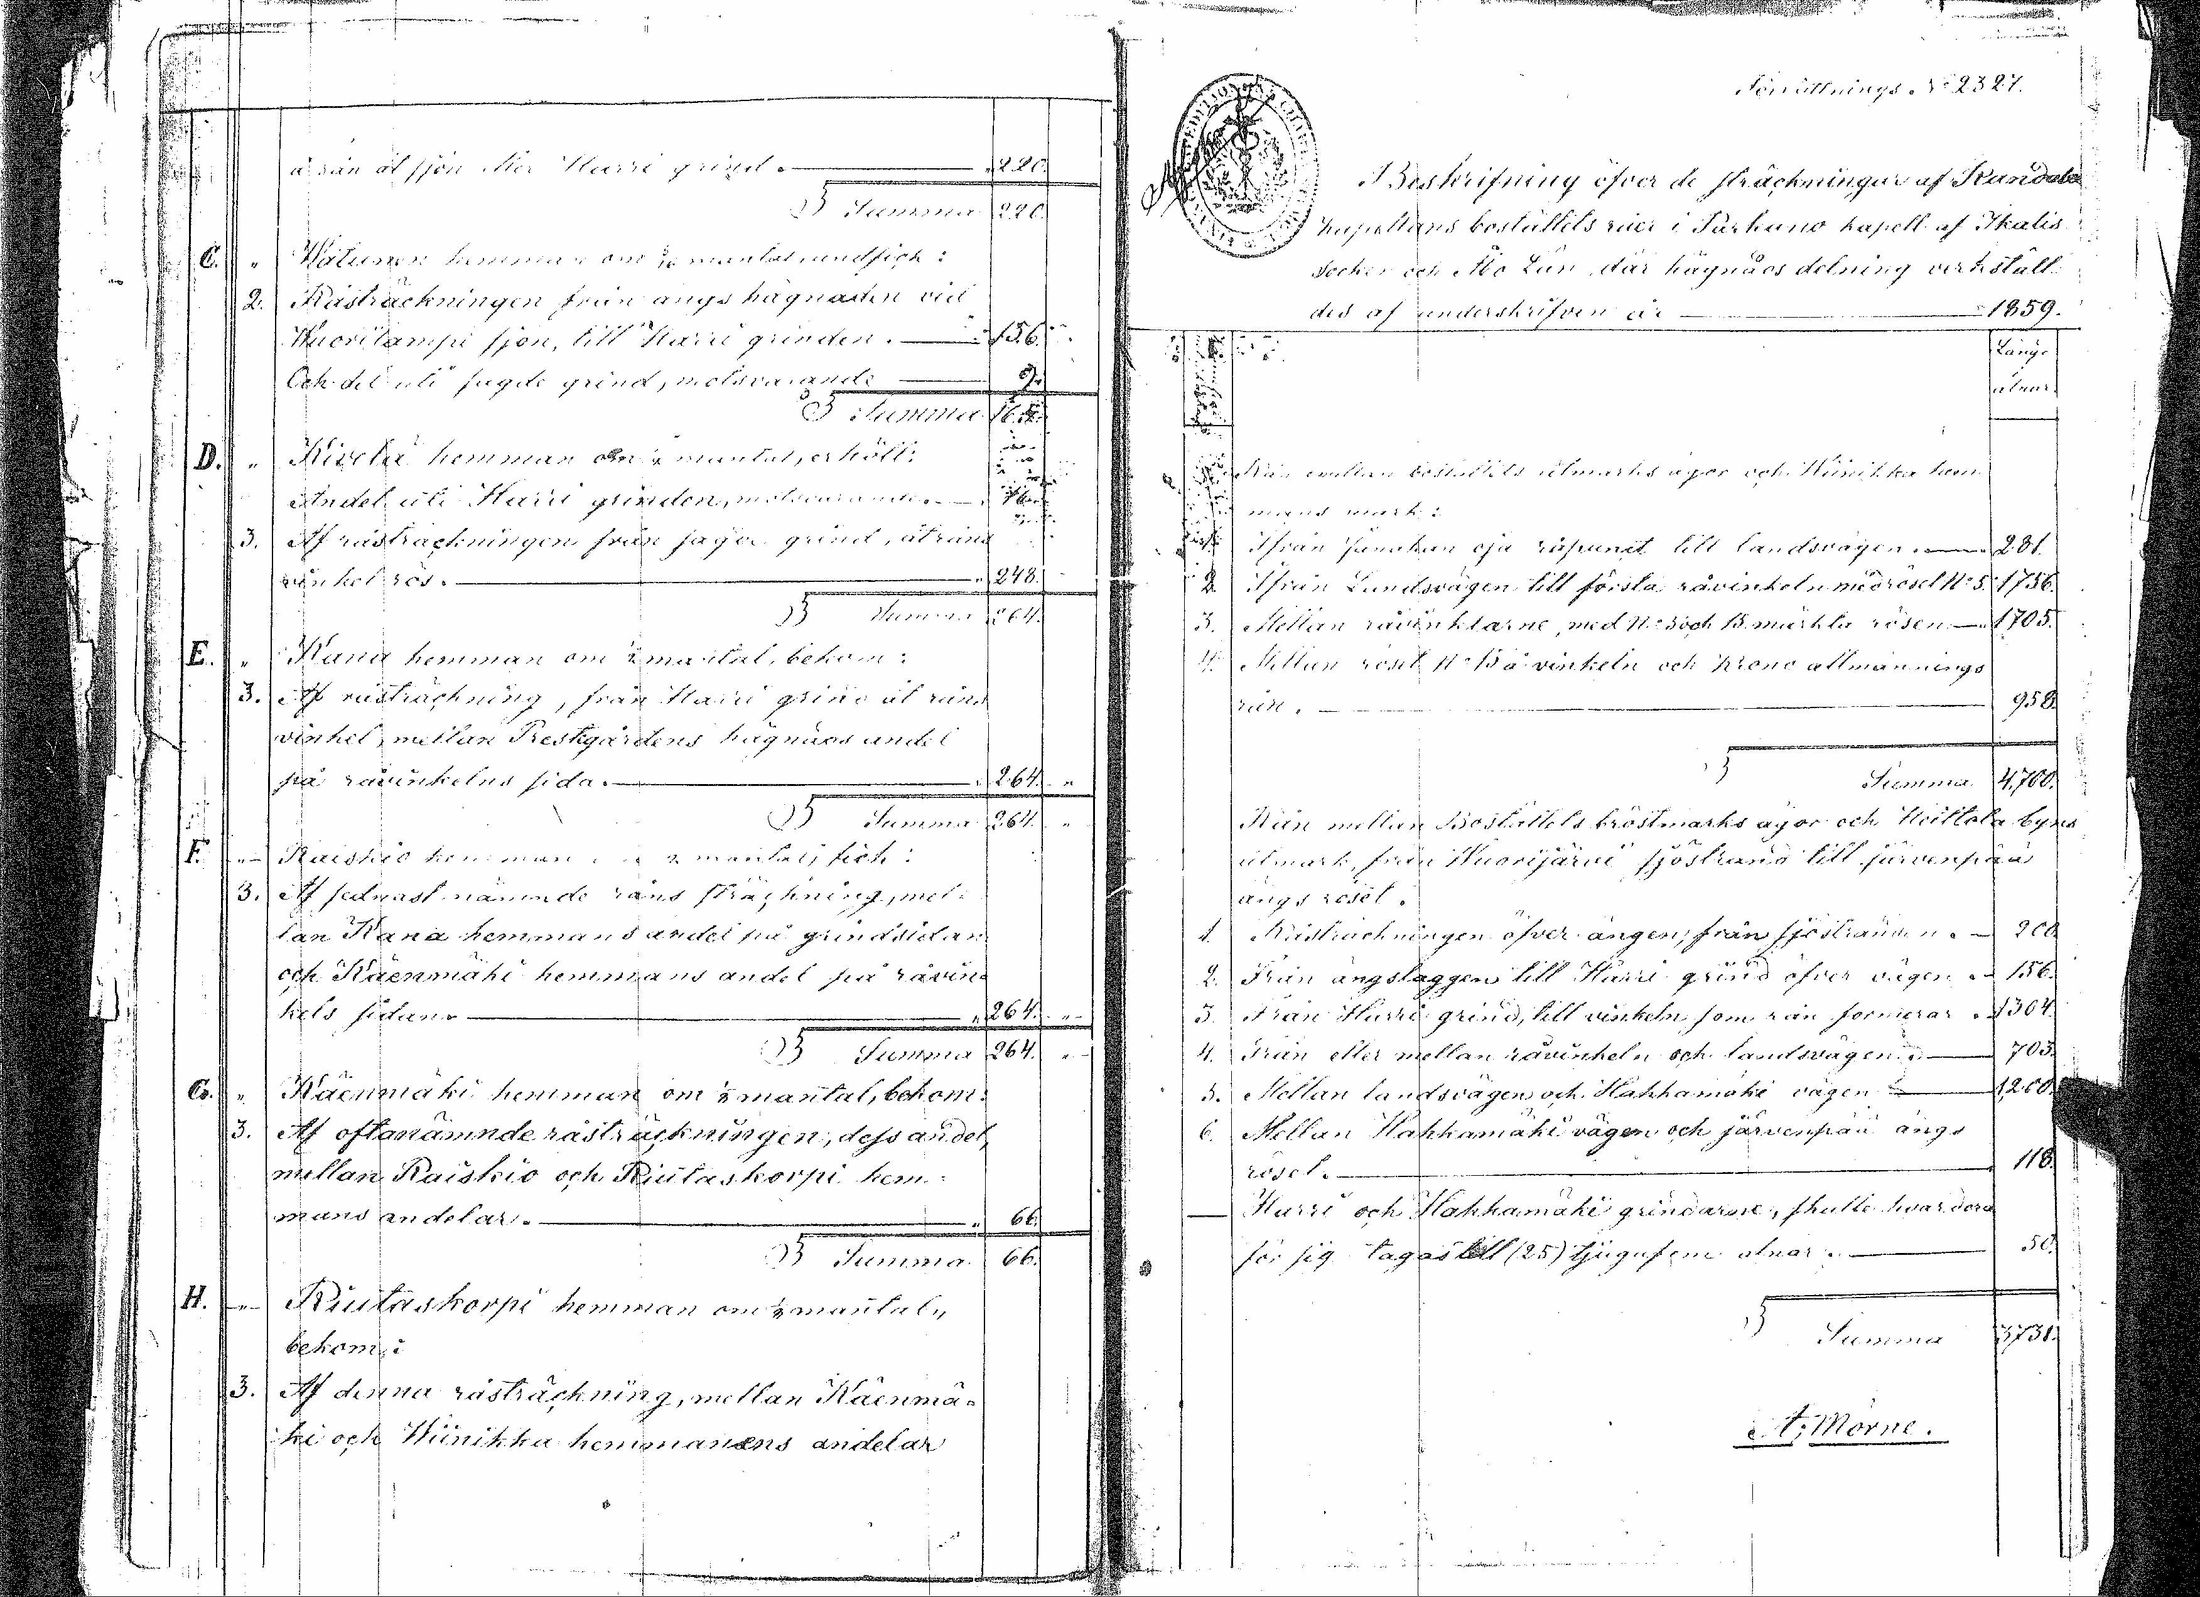 å rån åt sjön eller Harri grind. — " 220.
Summa 220.
C. " hemman om mantal undfick:
2. Råsträckningen från ängs hägnaden vid
Wuorilampi sjön, till Harri grinden. — 156.
Och del uti sagde grind, motsvarande — 9.
Summa
D. " Kivelä hemman om mantal, erhöll:
Andel uti Harri grinden, motsvarande. —
3. Af råsträckningen från sagde grind, åt råns
vinkel rös. — " 248.
Summa 264.
E. " Kana hemman om ½ mantal, bekom:
3. Af råsträckning, från Harri grind åt råns
vinkel, mellan Prestgårdens hägnads andel
på råvinkelns sida. — " 264. "
Summa 264. "
F. " Raiskio hemman ½ mantal, fick:
3. Af sednast nämnde råns sträckning, mel-
lan Kana hemmans andel på grindsidan
och Käenmäki hemmans andel på råvin-
kels sidan. — " 264. "
Summa 264. "
G. " Käenmäki hemman om ½ mantal, bekom:
3. Af oftanämnde råsträckningen, dess andel,
mellan Raiskio och Riutaskorpi hem-
mans andelar. — " 66.
Summa 66.
H. " Riutaskorpi hemman om ½ mantal,
bekom:
3. Af denna råsträckning, mellan Käenmä-
ki och Hiinikka hemmanens andelar
Förrättnings No 2327.
Beskrifning öfver de sträckningar af
kapellans boställets råer i Parkano kapell af Ikalis
Socken och Åbo Län, där hägnads delning verkställ-
des af underskrifven år — 1859.
Längd
alnar.
Rån mellan boställets utmarks ägor och Hiinikka hem-
mans mark:
Ifrån oja råpunct till landsvägen. — 281.
2. Ifrån Landsvägen till första råvinkeln med rösel No 5. 1756.
3. Mellan råvinklarne, med No 5 och 13 märkta rösen — 1705.
4. Mellan rösel No 13 å vinkeln och Krono allmännings
rån. — 958.
Summa 4,700.
Rån mellan Boställets bröstmarks ägor och byns
utmark, från Wuorijärvi sjöstrand till järvenpää
ängs rösel.
1. Råsträckningen öfver ängen, från sjöstranden. — 200.
2. Från ängslaggen till Harri grind öfver vägen. — 156.
3. Från Harri grind, till vinkeln som rån formerar. 1304.
4. Från eller mellan råvinkeln och landsvägen. — 703.
5. Mellan landsvägen och Hakkamäki vägen — 1,200.
6. Mellan Hakkamäki vägen och järvenpää ängs
rösel. — 118.
— Harri och Hakkamäki grindarne, skulle hvardera
för sig tagas till (25) tjugufem alnar. — 50.
Summa 3731.
A; Mörne.